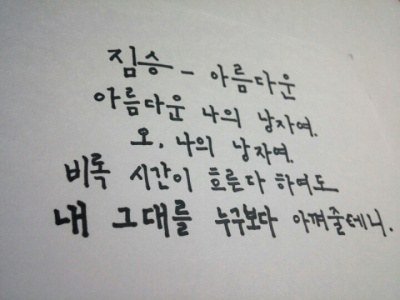 짐승 - 아름다운
아름다운 나의 낭자여.
오, 나의 낭자여.
비록 시간이 흐른다 하여도
내 그대를 누구보다 아껴줄테니.